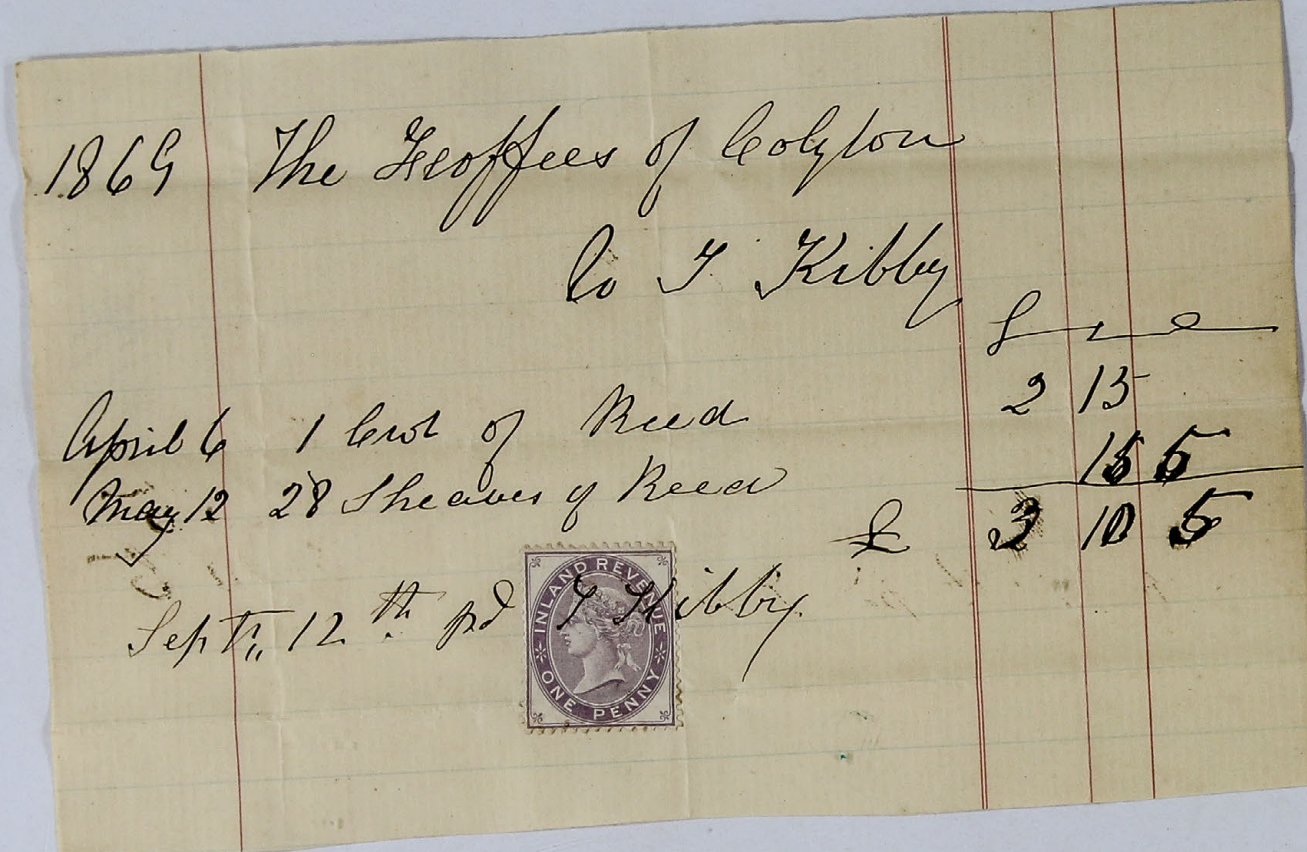 1869 The Feoffees of Colyton
To T Kibby
£ s d
April 6 1 Cwt of Reed 2 15
May 12 28 Sheaves of Reed 15 5
£ 3 10 5
Septr 12th pd T Kibby
INLAND REVENUE
ONE PENNY